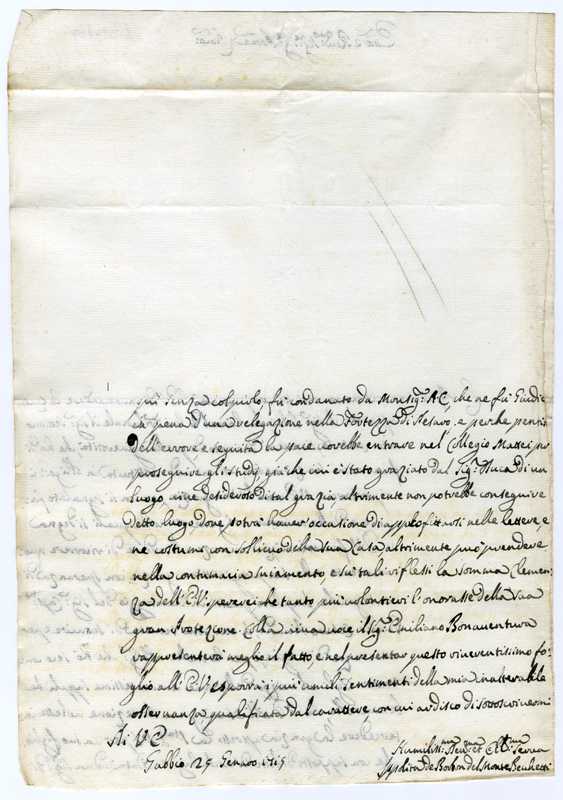 ogni senza colpirlo fù condanato da Monsig.r A C, che ne fu Giudice
in pena d'una relegazione nella Fortezza di Pesaro, e perche pentito
dell'errore e seguita la pace dovrebbe entrare nel Collegio Mattei per
proseguire gli studj, già che vi è stato graziato dal Sig.r Duca di un
luogo, vive desideroso di tal grazia, altrimente non potrebbe conseguire
detto luogo dove potrà haver occasione di approfittarsi nelle lettere, e
ne costumi con sollievo della sua Casa altrimente può prendere
nella contumacia
e sù tali riflessi la somma Clemen
za dell'E.V. perche tanto più volontieri l'onorasse della sua
gran Protezione. Colla viva voce il Sig.r Emiliano Bonaventura
rappresenterà meglio il fatto e nel presentar questo riverentissimo fo:
glio all'E.V. esporrà i più umili sentimenti della mia inalterabile
osservanza qualificata dal carattere, con cui ardisco di sottoscrivermi
Di V E
Gubbio 25 Genaro 1715
Humiliss.ma Dev.ma et Obl.ma Serva
de Borbon del Monte